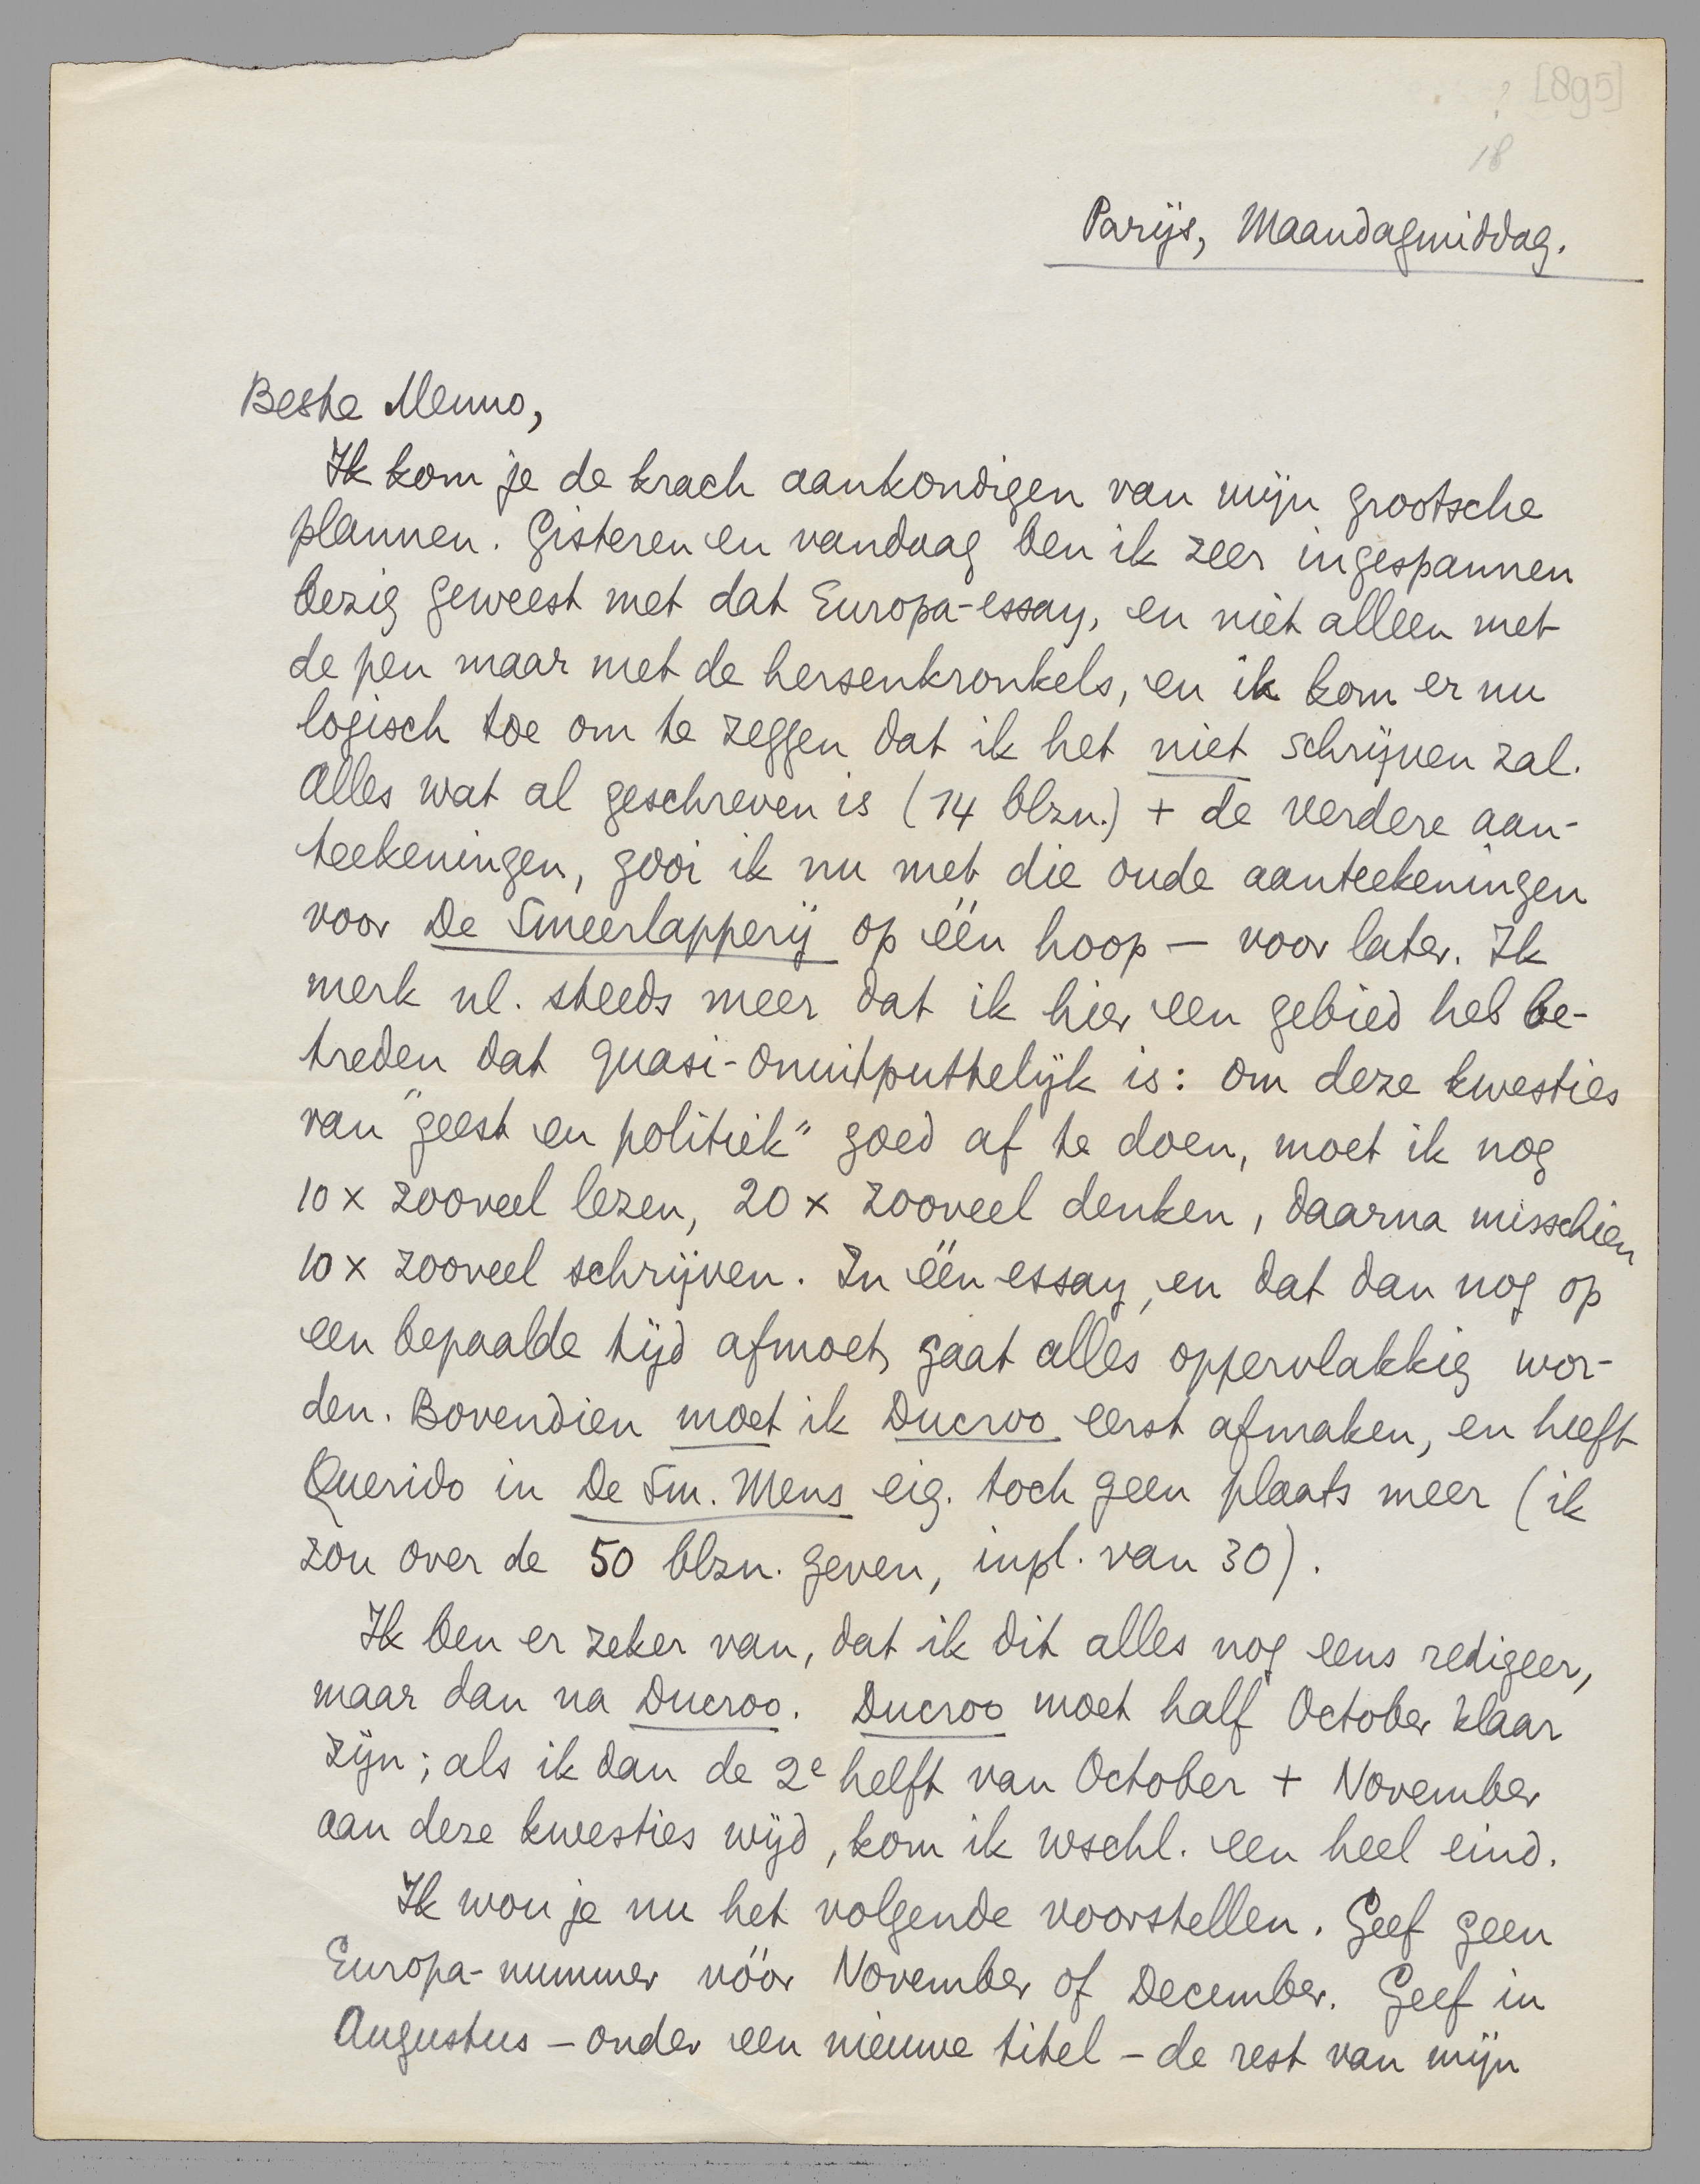 ? [895]
18
Parijs, Maandagmiddag.
Beste Menno,
Ik kom je de krach aankondigen van mijn grootsche
plannen. Gisteren en vandaag ben ik zeer ingespannen
bezig geweest met dat Europa-essay, en niet alleen met
de pen maar met de hersenkronkels, en ik kom er nu
logisch toe om te zeggen dat ik het niet schrijven zal.
Alles wat al geschreven is (14 blzn.) + de verdere aan-
teekeningen, gooi ik nu met die oude aanteekeningen
voor De Smeerlapperij op één hoop — voor later. Ik
merk nl. steeds meer dat ik hier een gebied heb be-
treden dat quasi-onuitputtelijk is: om deze kwesties
van "geest en politiek" goed af te doen, moet ik nog
10 x zooveel lezen, 20 x zooveel denken, daarna misschien
10 x zooveel schrijven. In één essay, en dat dan nog op
een bepaalde tijd afmoet, gaat alles oppervlakkig wor-
den. Bovendien moet ik Ducroo eerst afmaken, en heeft
Querido in De Sm. Mens eig. toch geen plaats meer (ik
zou over de 50 blzn. geven, inpl. van 30).
Ik ben er zeker van, dat ik dit alles nog eens redigeer,
maar dan na Ducroo. Ducroo moet half October klaar
zijn; als ik dan de 2e helft van October + November
aan deze kwesties wijd, kom ik wschl. een heel eind.
Ik wou je nu het volgende voorstellen. Geef geen
Europa-nummer vóór November of December. Geef in
Augustus – onder een nieuwe titel – de rest van mijn